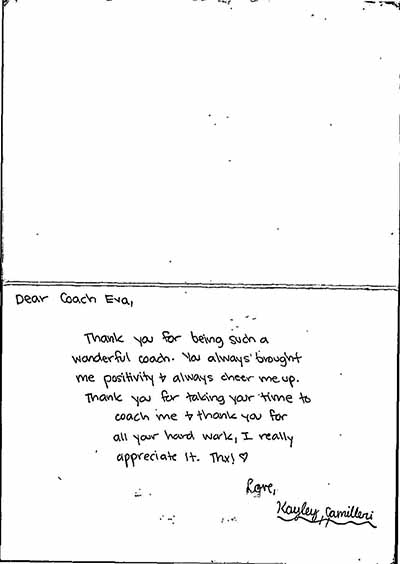 Dear Coach Eva,
Thank you for being such a
wonderful coach. You always brought
me positivity & always cheer me up.
Thank you for taking your time to
coach me & thank you for
all your hard work, I really
appreciate it. Thx! ♡
Love,
Kayley, Camilleri